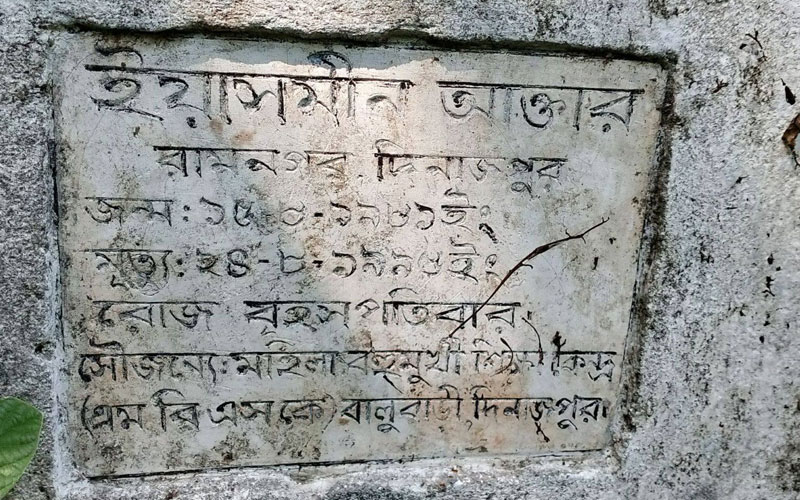 ইয়াসমীন আক্তার
রামনগর, দিনাজপুর
জন্ম: ১৫-০-১৯৮১ইং
মৃত্যু: ২৪-৮-১৯৯৫ইং
রোজ বৃহসপতিবার,
সৌজন্যে: মহিলা বহুমুখী শিক্ষা কেন্দ্র
(এম বি এস কে) বালুবাড়ী দিনাজপুর।